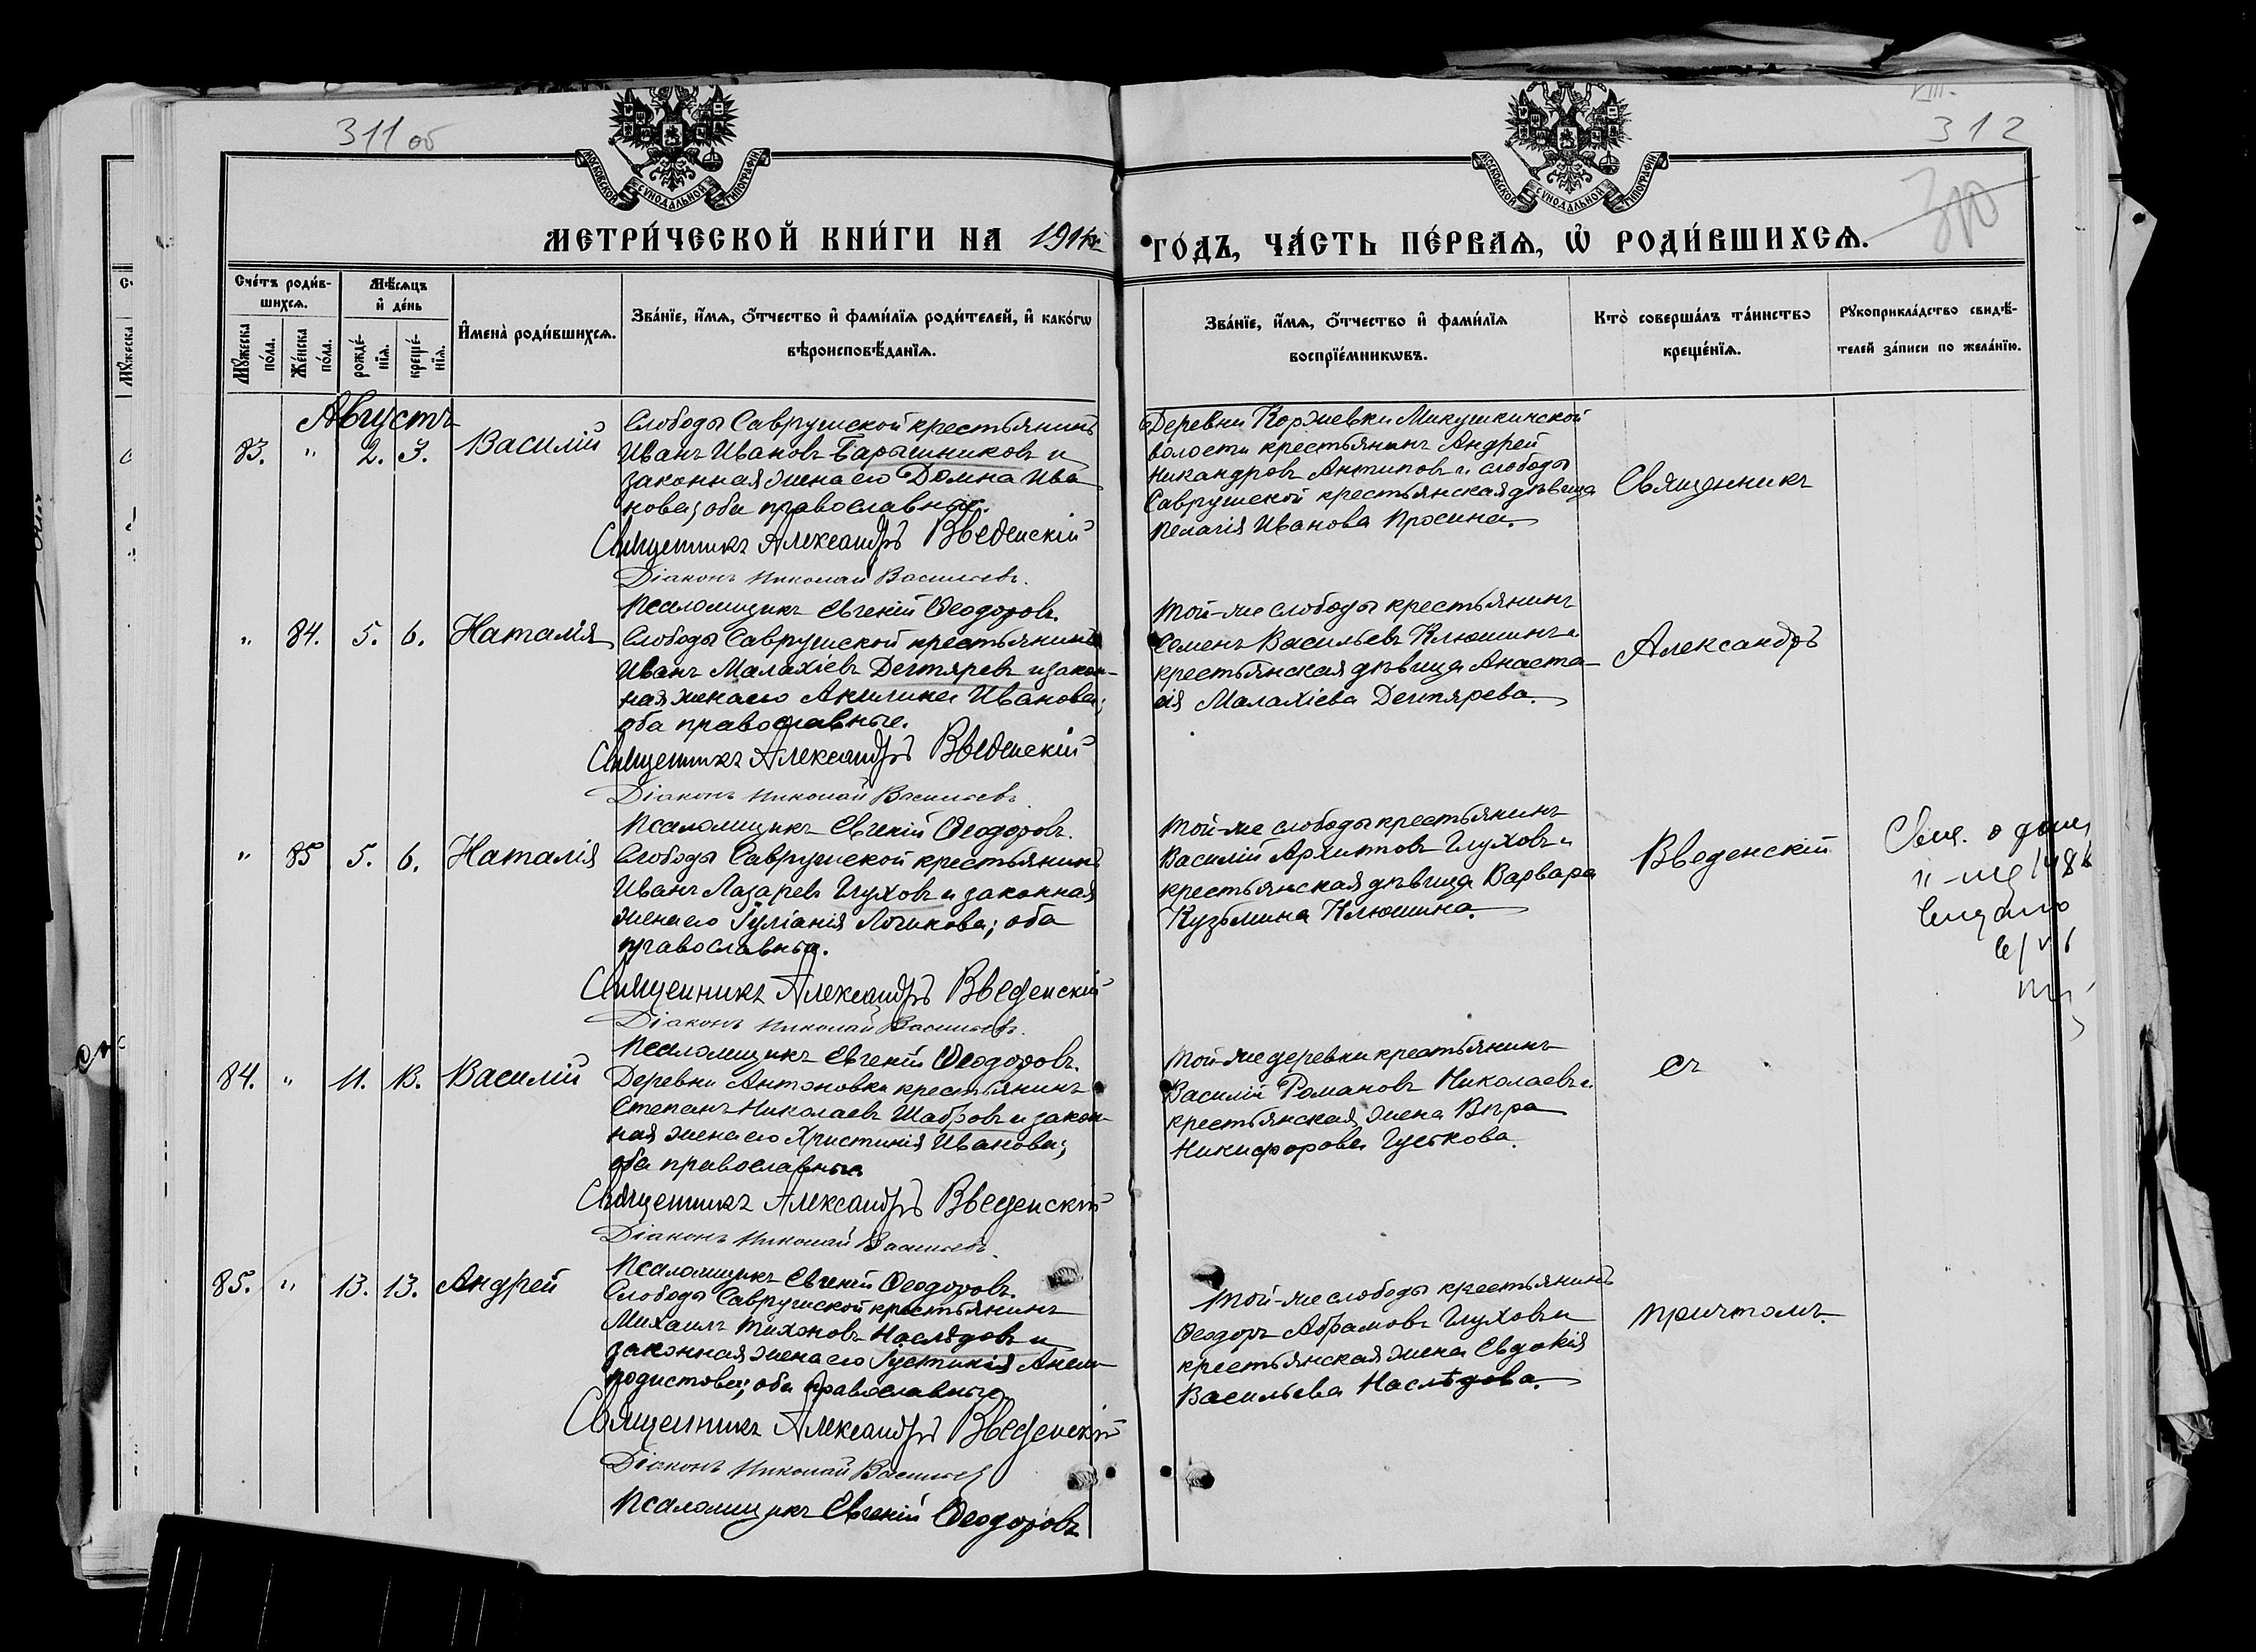 311 об
VIII.
312
310
МОСКОВСКОЙ СѴНОДАЛЬНОЙ ТИПОГРАФІИ
МОСКОВСКОЙ СѴНОДАЛЬНОЙ ТИПОГРАФІИ
МЕТРИ́ЧЕСКОЙ КНИ́ГИ НА 1914й ГО́ДЪ, ЧА́СТЬ ПЕ́РВАѦ, Ѡ҆ РОДИ́ВШИХСѦ.
Сче́тъ роди́в-
шихсѧ.
Мꙋ́жеска по́ла.
Же́нска по́ла.
Мѣ́сѧцъ
и҆ де́нь
рожде́-
нїѧ.
креще́-
нїѧ.
И҆мена̀ роди́вшихсѧ.
Зва́нїе, и҆́мѧ, ѻ҆́тчество и҆ фами́лїѧ роди́телей, и҆ како́гѡ
вѣроисповѣ́данїѧ.
Зва́нїе, и҆́мѧ, ѻ҆́тчество и҆ фами́лїѧ
воспрїе́мникѡвъ.
Кто̀ соверша́лъ та́инство
креще́нїѧ.
Рꙋкоприкла́дство свидѣ́-
телей за́писи по жела́нїю.
Августъ
83. " 2. 3. Василій
Слободы Саврушской крестьянинъ
Иванъ Ивановъ Барышниковъ и
законная жена его Домна Ива
нова; оба православные.
Священникъ Александръ Введенскій
Діаконъ Николай Васильевъ.
Псаломщикъ Евгеній Ѳеодоровъ.
Деревни Коржевки Микушкинской
волости крестьянинъ Андрей
Никандровъ Антиповъ и слободы
Саврушской крестьянская дѣвица
Пелагія Иванова Просина.
Священникъ
" 84. 5. 6. Наталія
Слободы Саврушской крестьянинъ
Иванъ Малахіевъ Дегтяревъ и закон-
ная жена его Акилина Иванова;
оба православные.
Священникъ Александръ Введенскій
Діаконъ Николай Васильевъ
Псаломщикъ Евгеній Ѳеодоровъ.
Той-же слободы крестьянинъ
Семенъ Васильевъ Клюшинъ и
крестьянская дѣвица Анаста-
сія Малахіева Дегтярева.
Александръ
" 85 5. 6. Наталія
Слободы Саврушской крестьянинъ
Иванъ Лазаревъ Глуховъ и законная
жена его Іуліанія Логинова; оба
православные.
Священникъ Александръ Введенскій
Діаконъ Николай Васильевъ.
Псаломщикъ Евгеній Ѳеодоровъ.
Той-же слободы крестьянинъ
Василій Архиповъ Глуховъ и
крестьянская дѣвица Варвара
Кузьмина Клюшина.
Введенскій
84. " 11. 13. Василій
Деревни Антоновки крестьянинъ
Степанъ Николаевъ Шабровъ и закон-
ная жена его Христинія Иванова;
оба православные
Священникъ Александръ Введенскій
Діаконъ Николай Васильевъ.
Псаломщикъ Евгеній Ѳеодоровъ.
Той-же деревни крестьянинъ
Василій Романовъ Николаевъ и
крестьянская жена Вѣра
Никифорова Гуськова.
съ
85. " 13. 13. Андрей
Слободы Саврушской крестьянинъ
Михаилъ Тихоновъ Наслѣдовъ и
законная жена его Іустинія Анем-
подистова; оба православные
Священникъ Александръ Введенскій
Діаконъ Николай Васильевъ
Псаломщикъ Евгеній Ѳеодоровъ
Той-же слободы крестьянинъ
Ѳеодоръ Абрамовъ Глуховъ и
крестьянская жена Евдокія
Васильева Наслѣдова.
причтомъ.